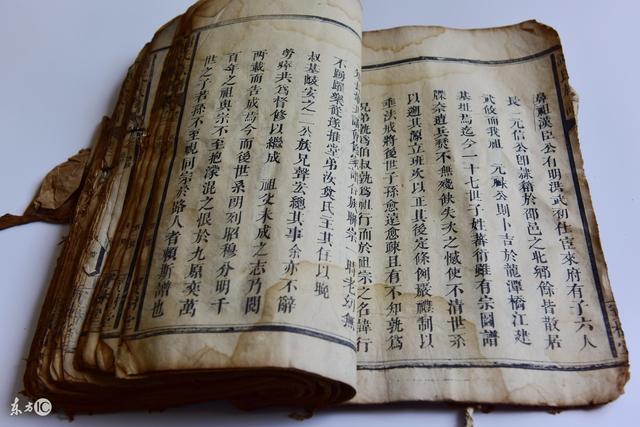 鼻祖漢臣公有明洪武初仕宦來府有子六人
長 元信公卽隸籍於邵邑之北鄉餘皆散居
武攸而我祖 元祿公則卜吉於龍潭橋江建
基址焉迄今一十七世子姓蕃衍雖有宗圖譜
牒奈遭兵燹不無殘缺失次之憾使不清世系
以遡其源立班次以正其後定條例嚴禮制以
垂法戒將後世子孫愈遠愈疎且有不知孰爲
兄弟孰爲伯叔孰爲祖行而於祖宗之名諱行
不踴躍樂從遂推堂弟汝
氏主其任以晚
叔基
安之二公族兄聲
總其事余亦不辭
勞瘁共爲督修以繼成 祖父未成之志乃閱
兩載而告成焉今而後世系明列昭穆分明千
百年之祖與宗不至抱濛混之恨於九原奕萬
世之子若孫不至視同宗於路人者賴斯譜也
东方IC